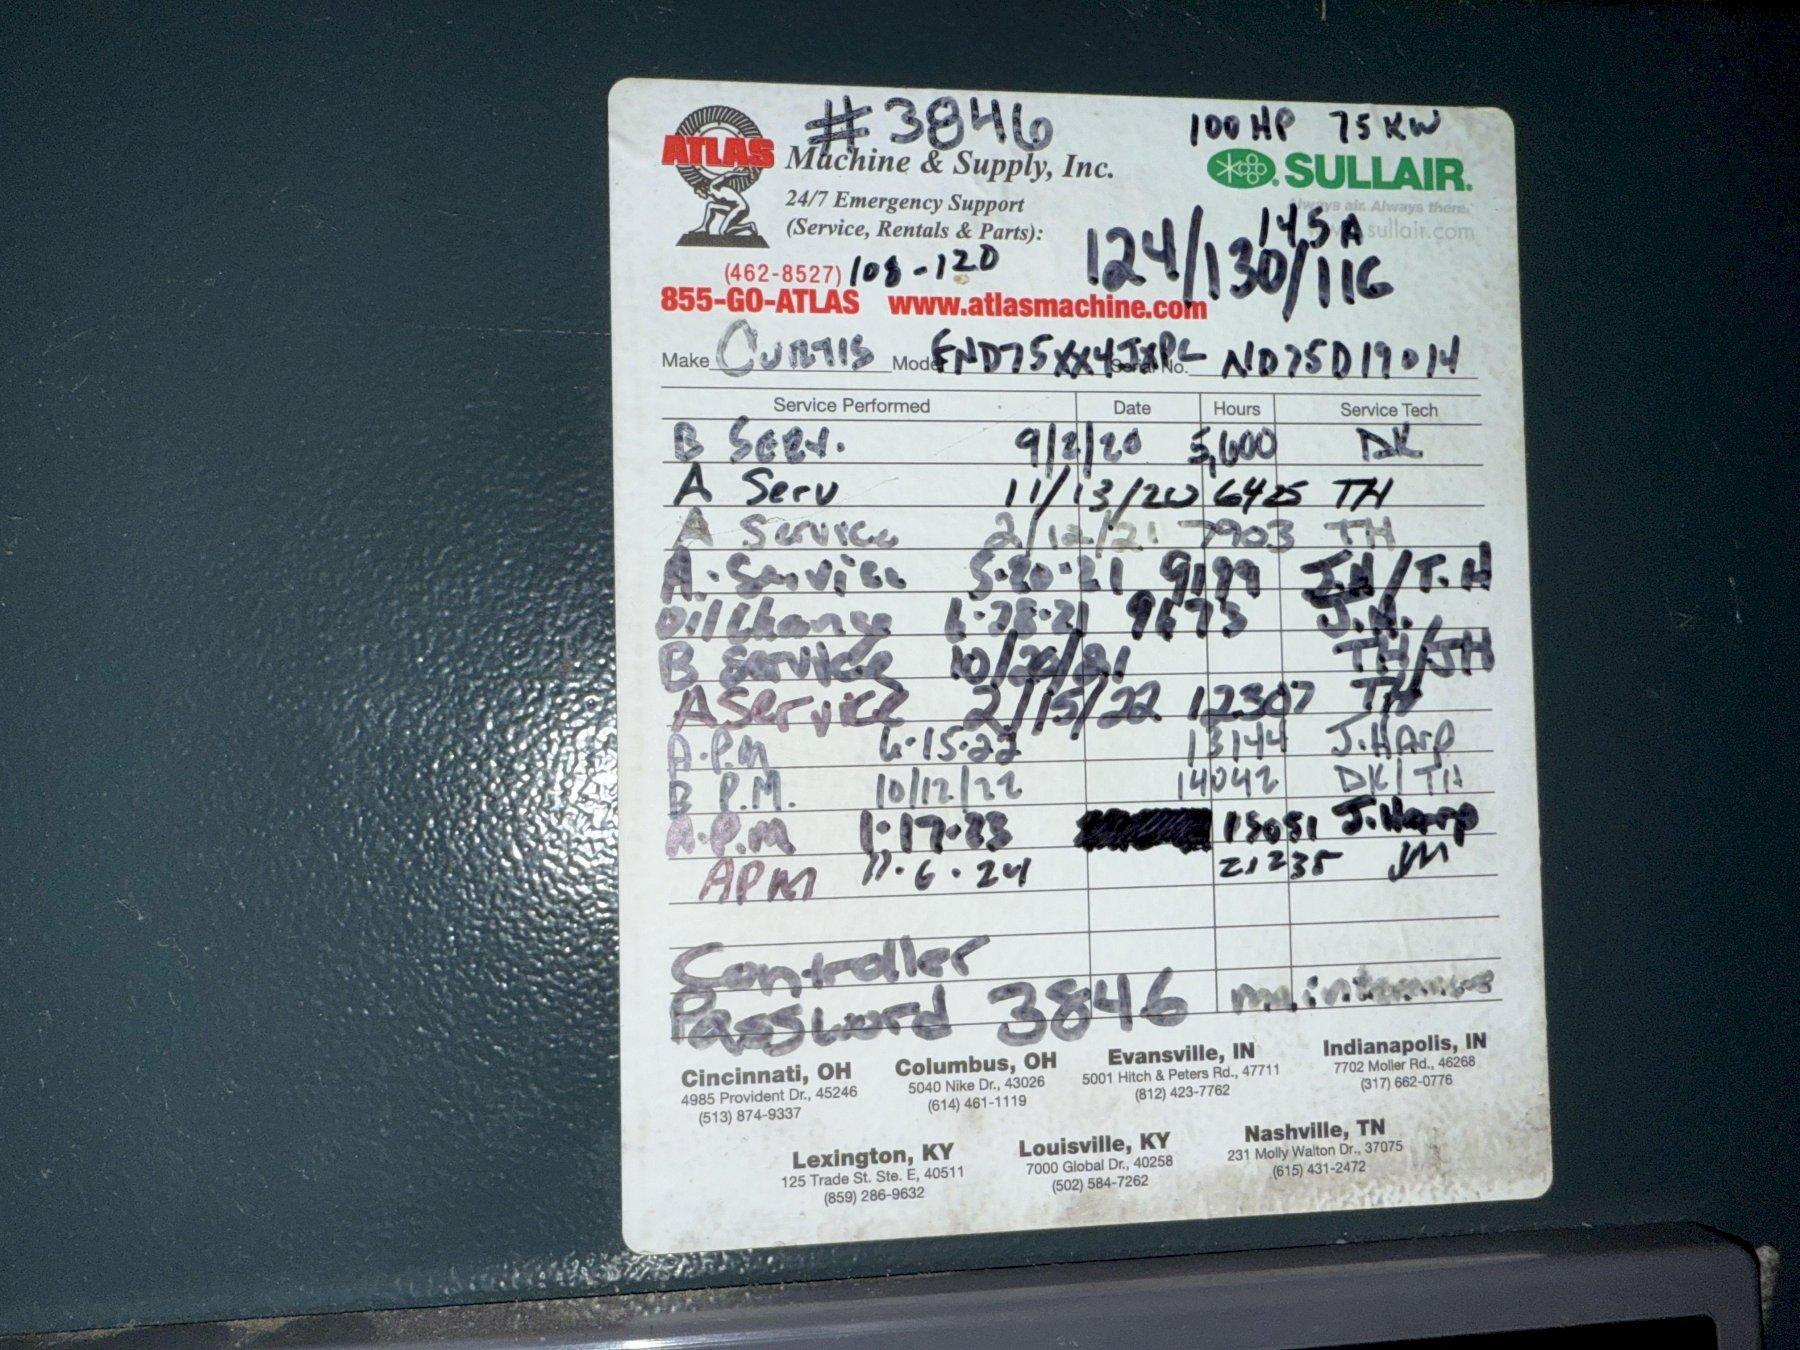 #3846 100 HP 75 KW
ATLAS Machine & Supply, Inc. SULLAIR.
24/7 Emergency Support Always air. Always there.
(Service, Rentals & Parts): 145 A sullair.com
(462-8527) 108-120 124/130/116
855-GO-ATLAS www.atlasmachine.com
Make CURTIS Serial No. ND75D19014
Service Performed Date Hours Service Tech
B Serv. 9/2/20 5,600 DK
A Serv 11/13/20 6425 TH
A Service 2/12/21 7903 TH
A. Service 5-20-21 9199 J.H/T.H
Oil Change 6-28-21 9673 J.H.
B Service 10/20/21 TH/JH
A Service 2/15/22 12307 TH
A.P.M 6-15-22 13144 J.Harp
B P.M. 10/12/22 14042 DK/TH
A.P.M 1-17-23 15051 J.Harp
APM 11.6.24 21235 JM
Controller
Password 3846 maintenance
Cincinnati, OH Columbus, OH Evansville, IN Indianapolis, IN
4985 Provident Dr., 45246 5040 Nike Dr., 43026 5001 Hitch & Peters Rd., 47711 7702 Moller Rd., 46268
(513) 874-9337 (614) 461-1119 (812) 423-7762 (317) 662-0776
Lexington, KY Louisville, KY Nashville, TN
125 Trade St. Ste. E, 40511 7000 Global Dr., 40258 231 Molly Walton Dr., 37075
(859) 286-9632 (502) 584-7262 (615) 431-2472